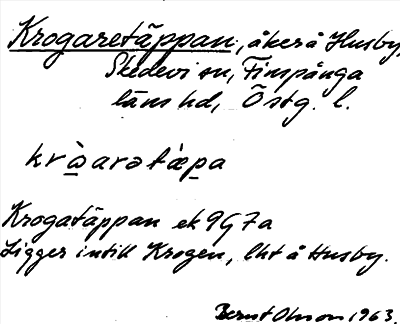 Krogaretäppan, åker å Husby,
Skedevi sn, Finspånga
läns hd, Östg. l.
krὼarətæ̀pa
Krogatäppan ek 9G7a
Ligger intill Krogen, lht å Husby.
Bernt Olsson 1963.